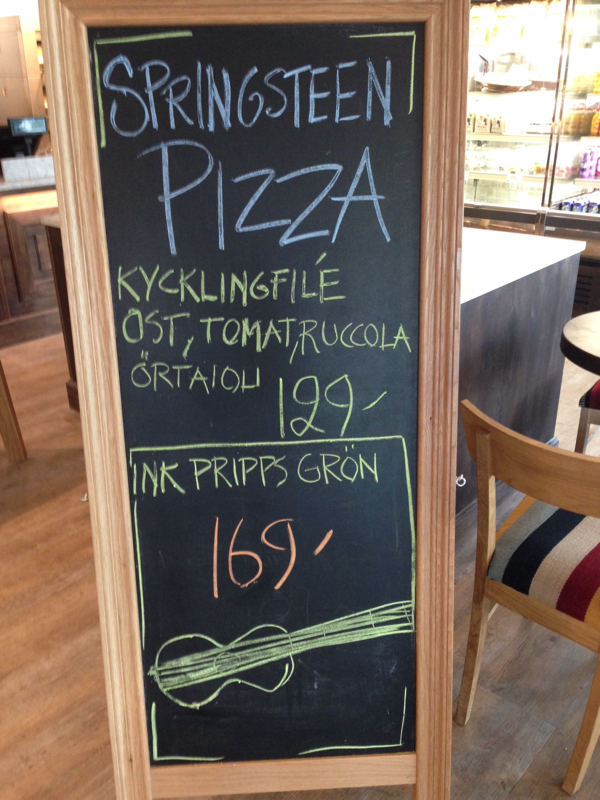 SPRINGSTEEN
PIZZA
KYCKLINGFILÉ
OST, TOMAT, RUCCOLA
ÖRTAIOLI
129,-
INK PRIPPS GRÖN
169,-